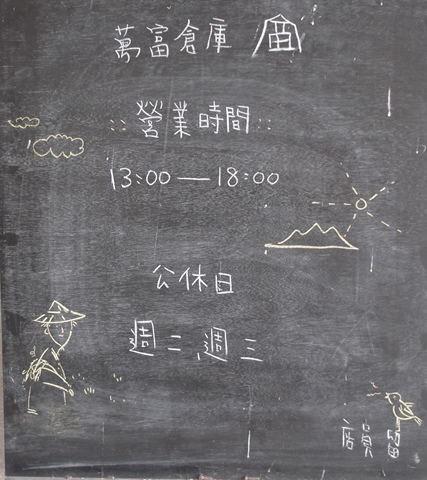 萬富倉庫
:: 營業時間 ::
13:00—18:00
公休日
週二、週三
店員 留